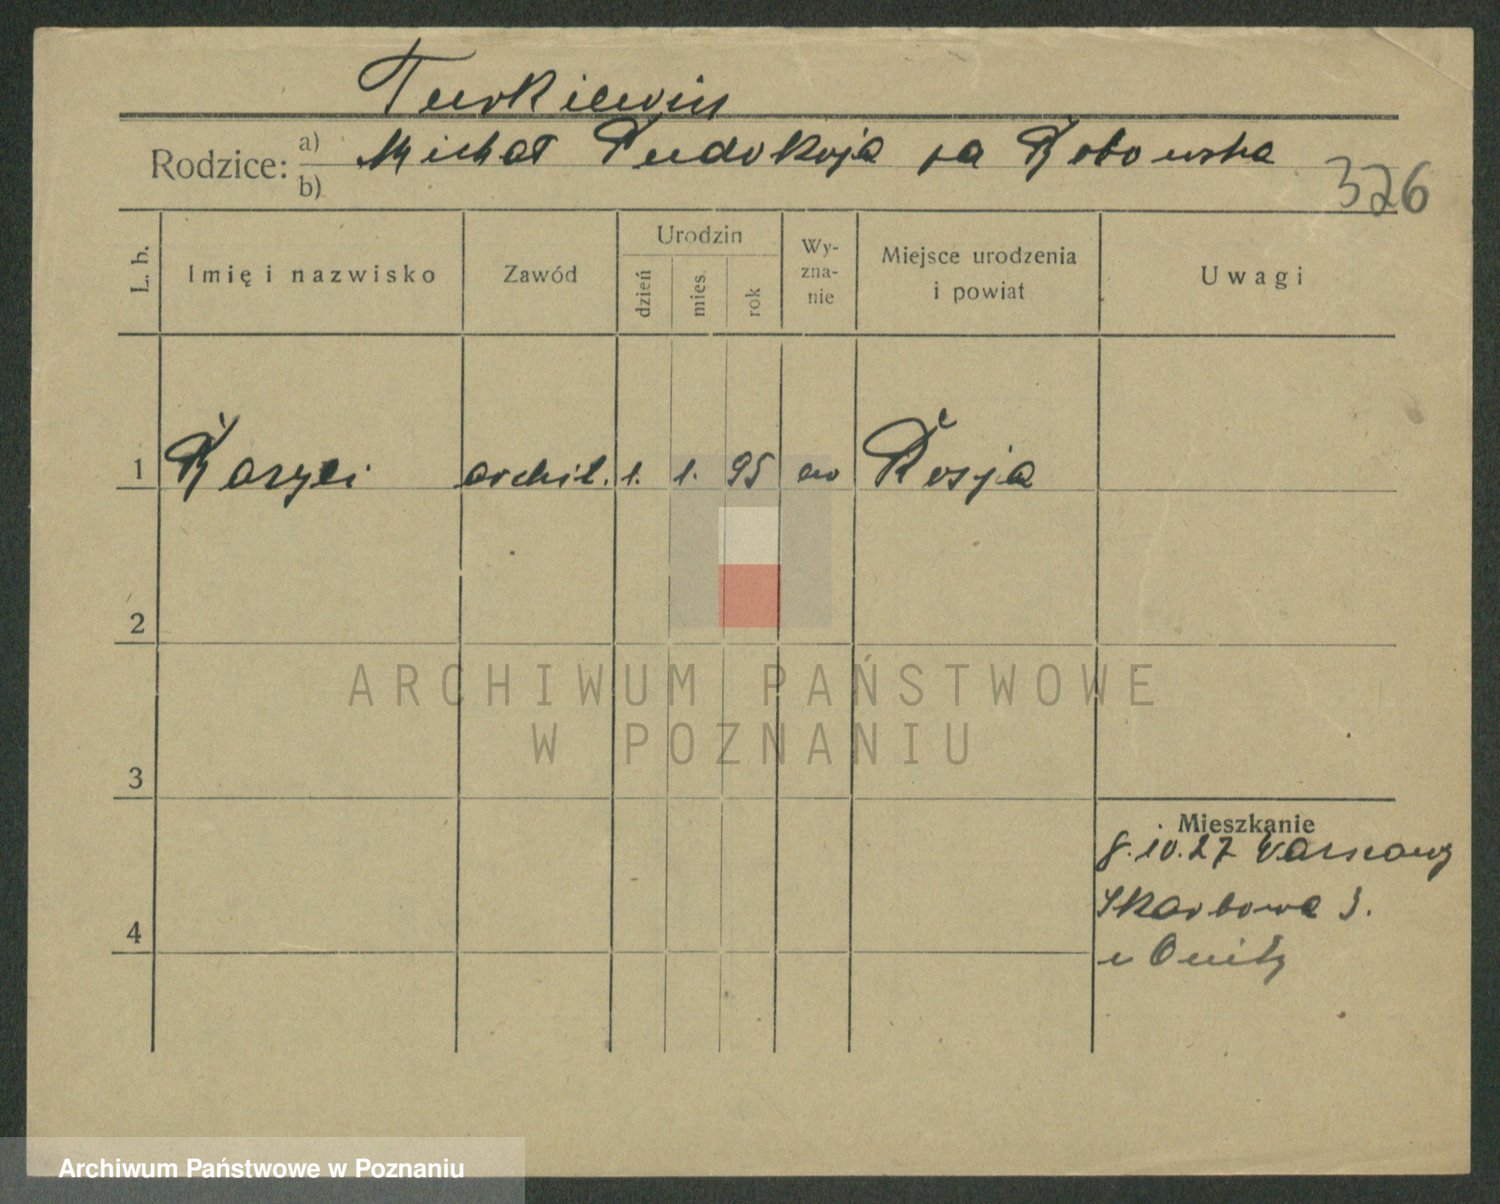 Turkiewicz
Rodzice: a) Michał
b)
326
L. b.
Imię i nazwisko
Zawód
Urodzin
dzień
mies.
rok
Wy-
zna-
nie
Miejsce urodzenia
i powiat
Uwagi
1 archit. 1. 1. 95 Rosja
2
3
4
Mieszkanie
8.10.27 Warszawy
Skarbowa 3.
u
ARCHIWUM PAŃSTWOWE
W POZNANIU
Archiwum Państwowe w Poznaniu